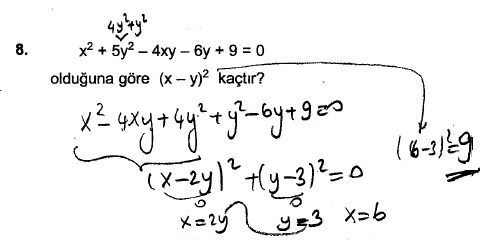 4y²+y²
8. x² + 5y² – 4xy – 6y + 9 = 0
olduğuna göre (x – y)² kaçtır?
x² – 4xy + 4y² + y² – 6y + 9 = 0
(6-3)² = 9
(x – 2y)² + (y – 3)² = 0
0 0
x = 2y y = 3 x = 6